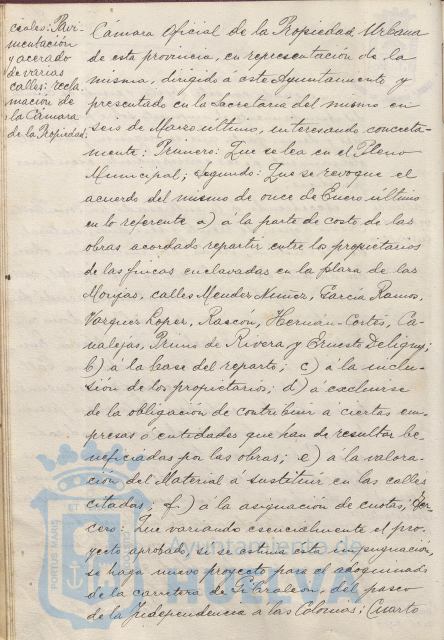 ciales: Pavi-
mentación
y acerado
de varias
calles: recla-
mación de
la Cámara
de la Propiedad;
Cámara Oficial de la Propiedad Urbana
de esta provincia, en representación de la
misma, dirigido á este Ayuntamiento y
presentado en la Secretaria del mismo en
seis de Marzo último, interesando concreta-
mente: Primero: Que se lea en el Pleno
Municipal; segundo: Que se revoque el
acuerdo del mismo de once de Enero último
en lo referente a) á la parte de costo de las
obras acordado repartir entre los propietarios
de las fincas enclavadas en la plaza de las
Monjas, calles Mendez Nuñez, Garcia Ramos,
Vazquez Lopez, Rascón, Hernán-Cortés, Ca-
nalejas, Primo de Rivera y Ernesto Deligny;
b) á la base del reparto; c) á la inclu-
sión de los propietarios; d) á excluirse
de la obligación de contribuir á ciertas em-
presas ó entidades que han de resultar be-
neficiadas por las obras; e) á la valora-
ción del Material á sustituir en las calles
citadas; f) á la asignación de cuotas; Ter-
cero: Que variando esencialmente el pro-
yecto aprobado, si se estima esta impugnación,
se haga nuevo proyecto para el adoquinado
de la carretera de Gibraleon, del paseo
de la Independencia a las Colonias; Cuarto
PORTUS MARIS ET
Ayuntamiento de
HUELVA